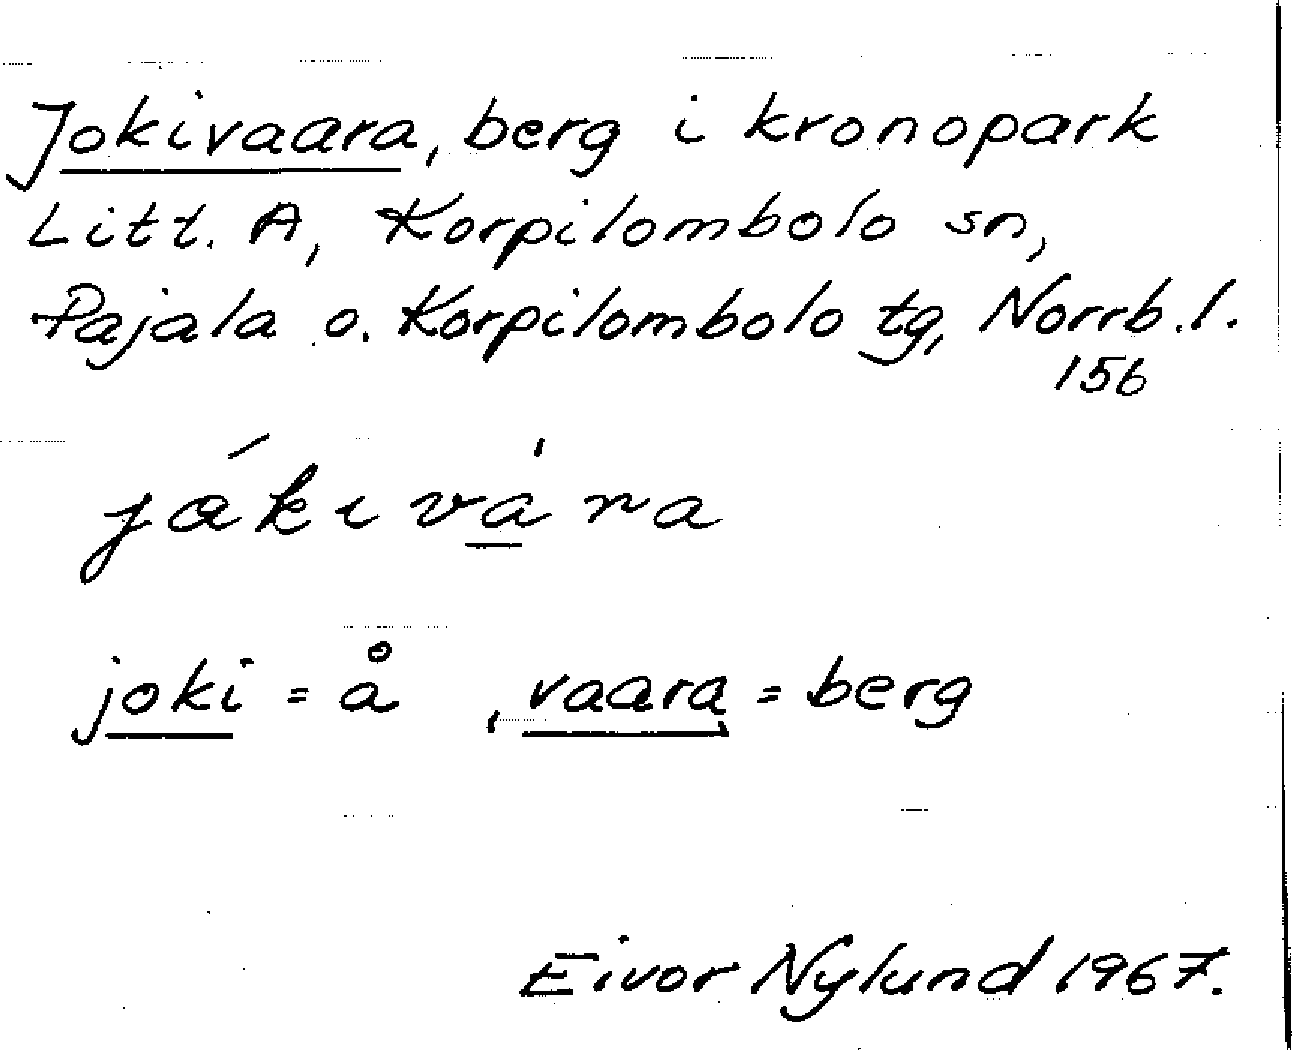 Jokivaara, berg i kronopark
Litt. A, Korpilombolo sn,
Pajala o. Korpilombolo tg, Norrb. l.
156
jákivàra
joki = å, vaara = berg
Eivor Nylund 1967.